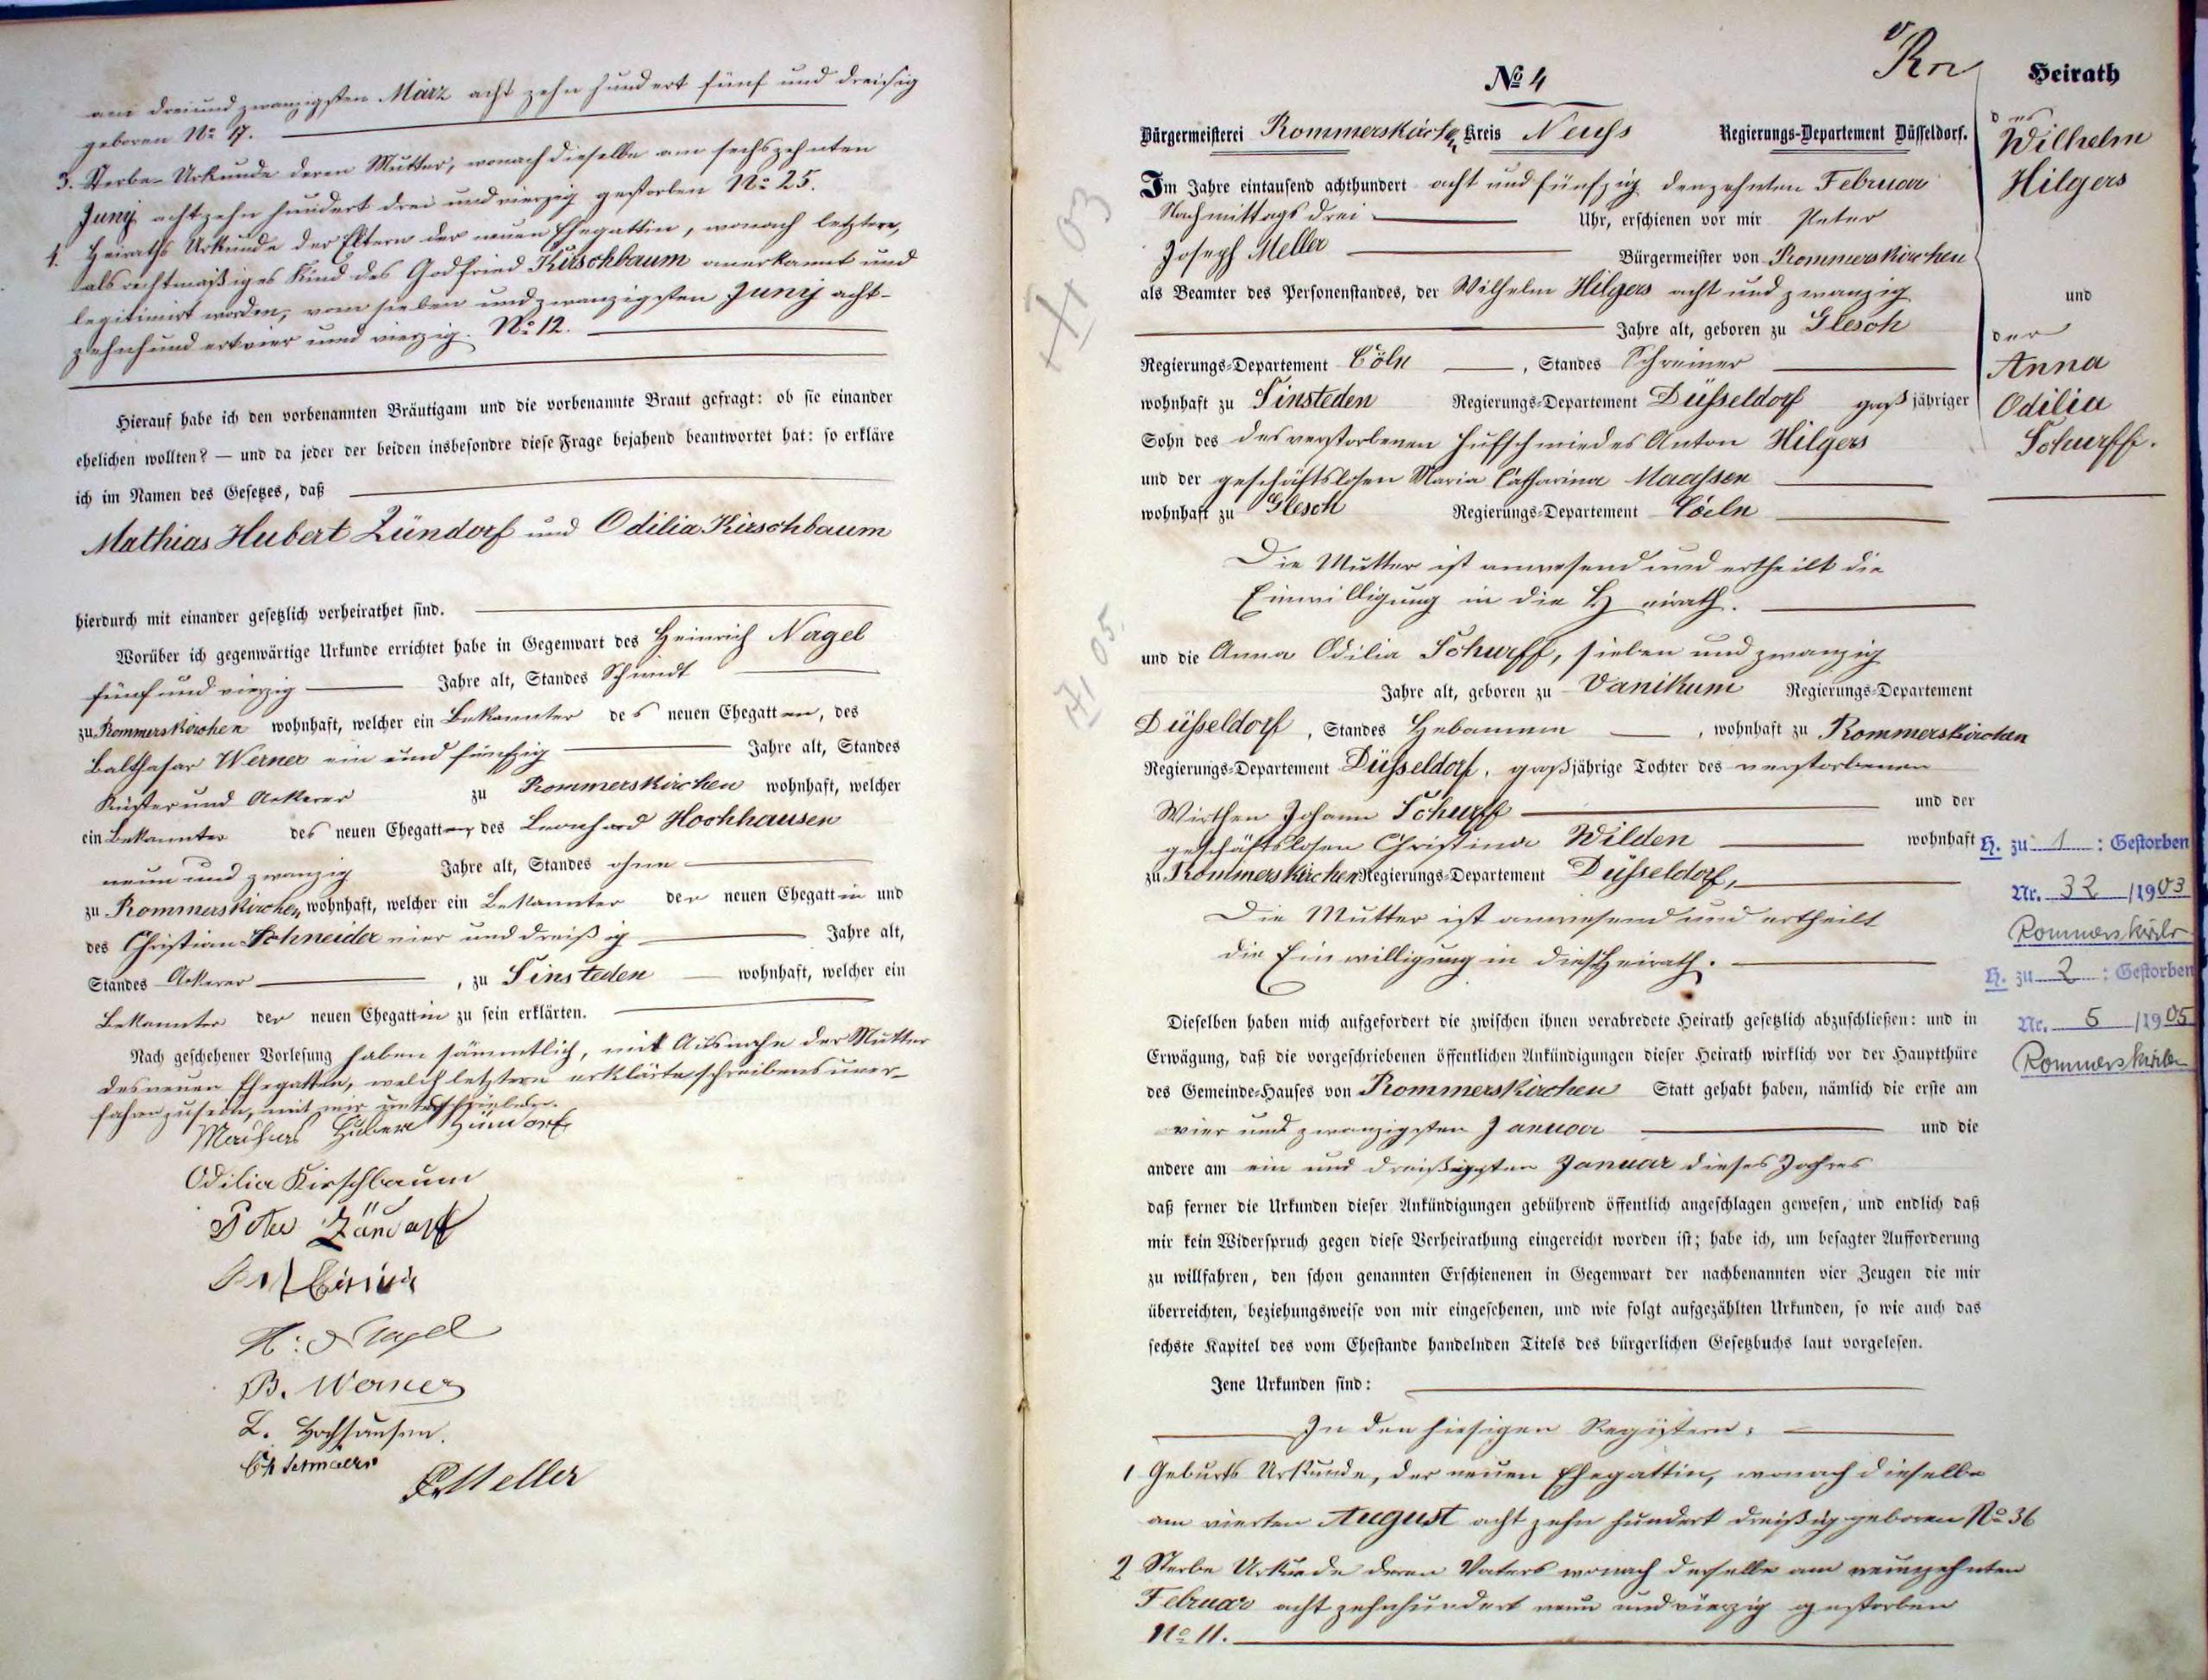 am dreiund zwanzigsten März acht zehn hundert fünf und dreißig
geboren No 17.
3. Sterbe-Urkunde deren Mutter, wonach dieselbe am sechszehnten
Junij achtzehn hundert drei und vierzig gestorben No 25.
4. Heiraths Urkunde der Eltern der neuen Ehegattin, wonach letztere,
als rechtmäßiges Kind des Godfried Kirschbaum anerkannt und
legitimirt worden, vom sieben und zwanzigsten Junij acht-
zehnhundert vier und vierzig. No 12.
Hierauf habe ich den vorbenannten Bräutigam und die vorbenannte Braut gefragt: ob sie einander
ehelichen wollten? — und da jeder der beiden insbesondre diese Frage bejahend beantwortet hat: so erkläre
ich im Namen des Gesetzes, daß
Mathias Hubert Zündorf und Odilia Kirschbaum
hierdurch mit einander gesetzlich verheirathet sind.
Worüber ich gegenwärtige Urkunde errichtet habe in Gegenwart des Heinrich Nagel
fünf und vierzig Jahre alt, Standes Schmidt
zu Rommerskirchen wohnhaft, welcher ein Bekannter des neuen Ehegatten, des
Balthasar Werner ein und fünfzig Jahre alt, Standes
Küster und Ackerer zu Rommerskirchen wohnhaft, welcher
ein Bekannter des neuen Ehegatten, des Leonhard Hochhausen
neun und zwanzig Jahre alt, Standes ohne
zu Rommerskirchen wohnhaft, welcher ein Bekannter der neuen Ehegattin und
des Christian Schneider vier und dreißig Jahre alt,
Standes Ackerer, zu Sinsteden wohnhaft, welcher ein
Bekannter der neuen Ehegattin zu sein erklärten.
Nach geschehener Vorlesung haben sämmtlich, mit Ausnahme der Mutter
des neuen Ehegatten, welch letztere erklärte schreibens uner-
fahren zu sein, mit mir unterschrieben.
Mathias Hubert Zündorf
Odilia Kirschbaum
Peter Zündorf
H: Nagel
B. Werner
L. Hochhausen.
PMeller
No 4
Rn
Heirath
Bürgermeisterei Rommerskirchen Kreis Neuss Regierungs-Departement Düsseldorf.
des
Wilhelm
Hilgers
und
der
Anna
Odilia
Schurff.
Im Jahre eintausend achthundert acht und fünfzig den zehnten Februar
Nachmittags drei Uhr, erschienen vor mir Peter
Joseph Meller Bürgermeister von Rommerskirchen
als Beamter des Personenstandes, der Wilhelm Hilgers acht und zwanzig
Jahre alt, geboren zu Glesch
Regierungs-Departement Cöln, Standes Schreiner
wohnhaft zu Sinsteden Regierungs-Departement Düsseldorf großjähriger
Sohn des des verstorbenen Hufschmiedes Anton Hilgers
und der geschäftslosen Maria Catharina Maassen
wohnhaft zu Glesch Regierungs-Departement Cöeln
Die Mutter ist anwesend und ertheilt die
Einwilligung in die Heirath.
und die Anna Odilia Schurff, sieben und zwanzig
Jahre alt, geboren zu Vanikum Regierungs-Departement
Düsseldorf, Standes Hebamme, wohnhaft zu Rommerskirchen
Regierungs-Departement Düsseldorf, großjährige Tochter des verstorbenen
Wirthen Johann Schurff und der
geschäftslosen Christina Wilden wohnhaft
zu Rommerskirchen Regierungs-Departement Düsseldorf,
Die Mutter ist anwesend und ertheilt
die Einwilligung in diese Heirath.
H. zu 1: Gestorben
Nr. 32/1903
Rommerskirchen
H. zu 2: Gestorben
Nr. 5/1905
Rommerskirchen
Dieselben haben mich aufgefordert die zwischen ihnen verabredete Heirath gesetzlich abzuschließen: und in
Erwägung, daß die vorgeschriebenen öffentlichen Ankündigungen dieser Heirath wirklich vor der Hauptthüre
des Gemeinde-Hauses von Rommerskirchen Statt gehabt haben, nämlich die erste am
vier und zwanzigsten Januar und die
andere am ein und dreißigsten Januar dieses Jahres
daß ferner die Urkunden dieser Ankündigungen gebührend öffentlich angeschlagen gewesen, und endlich daß
mir kein Widerspruch gegen diese Verheirathung eingereicht worden ist; habe ich, um besagter Aufforderung
zu willfahren, den schon genannten Erschienenen in Gegenwart der nachbenannten vier Zeugen die mir
überreichten, beziehungsweise von mir eingesehenen, und wie folgt aufgezählten Urkunden, so wie auch das
sechste Kapitel des vom Ehestande handelnden Titels des bürgerlichen Gesetzbuchs laut vorgelesen.
Jene Urkunden sind:
In den hiesigen Registern:
1 Geburts Urkunde, der neuen Ehegattin, wonach dieselbe
am vierten August acht zehn hundert dreißig geboren No 36
2 Sterbe Urkunde deren Vaters wonach derselbe am neunzehnten
Februar acht zehnhundert neun und vierzig gestorben
No 11.